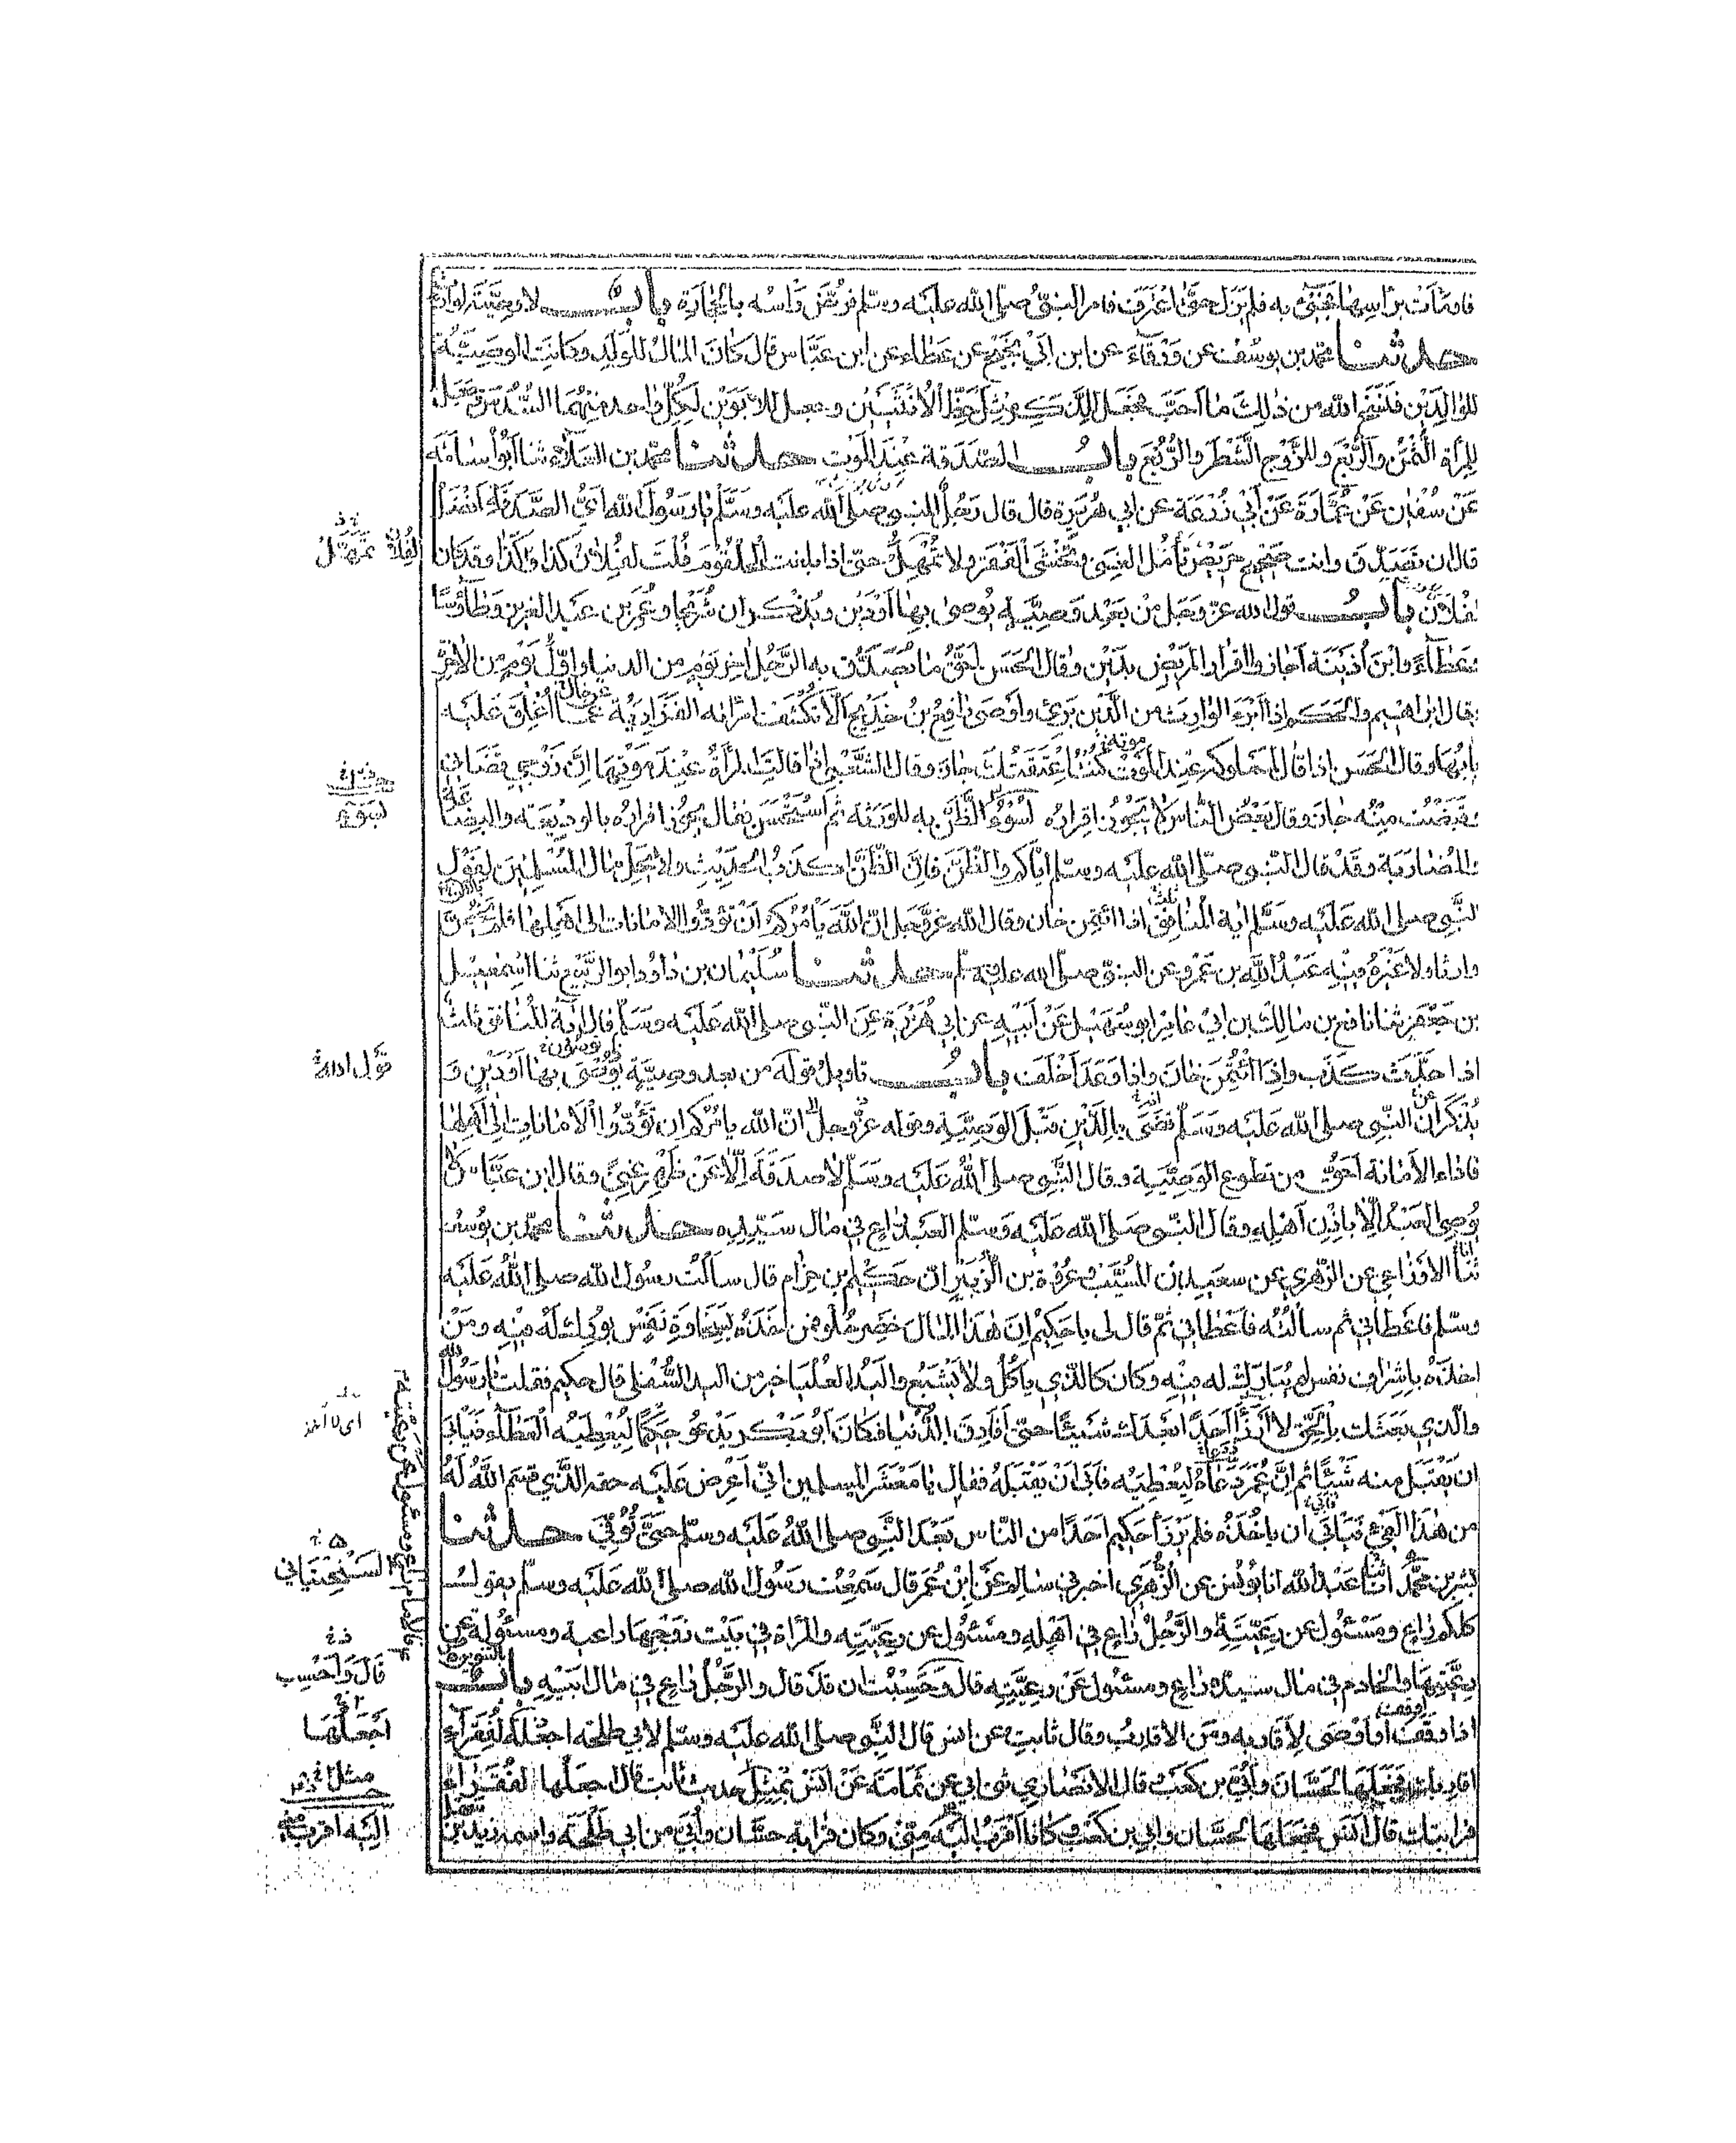 فاومأت براسها فجئ به فلم يزل حتى اعترف فامر النبي صلى الله عليه وسلم فرض راسه بالحجارة باب لا وصية لوارث
حدثنا محمد بن يوسف عن ورقاء عن ابن ابي نجيح عن عطاء عن ابن عباس قال كان المال للولد وكانت الوصية
للوالدين فنسخ الله من ذلك ما احب فجعل للذكر مثل حظ الانثيين وجعل للابوين لكل واحد منهما السدس وجعل
للمرأة الثمن والربع وللزوج الشطر والربع باب الصدقة عند الموت حدثنا محمد بن العلاء ثنا ابو اسامة
عن سفيان عن عمارة عن ابي زرعة عن ابي هريرة قال قال رجل للنبي صلى الله عليه وسلم يا رسول الله اي الصدقة افضل
قال ان تصدق وانت صحيح حريص تأمل الغنى وتخشى الفقر ولا تمهل حتى اذا بلغت الحلقوم قلت لفلان كذا ولفلان كذا وقد كان
لفلان باب قول الله عز وجل من بعد وصية يوصى بها او دين ويذكر ان شريحا وعمر بن عبد العزيز وطاؤسا
وعطاء وابن اذينة اجازوا اقرار المريض بدين وقال الحسن احق ما تصدق به الرجل اخر يوم من الدنيا واول يوم من الاخرة
وقال ابراهيم والحكم اذا ابرء الوارث من الدين برئ واوصى رافع بن خديج ان لا تكشف امرأته الفزارية عما اغلق عليه
بابها وقال الحسن اذا قال لمملوكه عند الموت كنت اعتقتك جاز وقال الشعبي اذا قالت المرأة عند موتها ان زوجي قضاني
وقبضت منه جاز وقال بعض الناس لا يجوز اقراره لسوء الظن به للورثة ثم استحسن فقال يجوز اقراره بالوديعة والبضاعة
والمضاربة وقد قال النبي صلى الله عليه وسلم اياكم والظن فان الظن اكذب الحديث ولا يحل مال المسلمين لقول
النبي صلى الله عليه وسلم اية المنافق اذا اؤتمن خان وقال الله عز وجل ان الله يأمركم ان تؤدوا الامانات الى اهلها فلم يخص
وارثا ولا غيره فيه عبد الله بن عمرو عن النبي صلى الله عليه وسلم حدثنا سليمان بن داود ابو الربيع ثنا اسمعيل
بن جعفر ثنا نافع بن مالك بن ابي عامر ابو سهيل عن ابيه عن ابي هريرة عن النبي صلى الله عليه وسلم قال اية المنافق ثلث
اذا حدث كذب واذا اؤتمن خان واذا وعد اخلف باب تاويل قوله من بعد وصية يوصى بها او دين و
يذكر ان النبي صلى الله عليه وسلم قضى بالدين قبل الوصية وقوله عز وجل ان الله يامركم ان تؤدوا الامانات الى اهلها
فاداء الامانة احق من تطوع الوصية وقال النبي صلى الله عليه وسلم لا صدقة الا عن ظهر غنى وقال ابن عباس لا
يوصي العبد الا باذن اهله وقال النبي صلى الله عليه وسلم العبد راع في مال سيده حدثنا محمد بن يوسف
ثنا الاوزاعي عن الزهري عن سعيد بن المسيب وعروة بن الزبير ان حكيم بن حزام قال سألت رسول الله صلى الله عليه
وسلم فاعطاني ثم سألته فاعطاني ثم قال لي يا حكيم ان هذا المال خضر حلو فمن اخذه بسخاوة نفس بورك له فيه ومن
اخذه باشراف نفس لم يبارك له فيه وكان كالذي ياكل ولا يشبع واليد العليا خير من اليد السفلى قال حكيم فقلت يا رسول الله
والذي بعثك بالحق لا ارزأ احدا بعدك شيئا حتى افارق الدنيا فكان ابو بكر يدعو حكيما ليعطيه العطاء فيأبى
ان يقبل منه شيئا ثم ان عمر دعاه ليعطيه فابى ان يقبله فقال يا معشر المسلمين اني اعرض عليه حقه الذي قسم الله له
من هذا الفيء فيأبى ان ياخذه فلم يرزأ حكيم احدا من الناس بعد النبي صلى الله عليه وسلم حتى توفي حدثنا
بشر بن محمد انا عبد الله انا يونس عن الزهري اخبرني سالم عن ابن عمر قال سمعت رسول الله صلى الله عليه وسلم يقول
كلكم راع ومسئول عن رعيته والرجل راع في اهله ومسئول عن رعيته والمرأة في بيت زوجها راعية ومسئولة عن
رعيتها والخادم في مال سيده راع ومسئول عن رعيته قال وحسبت ان قد قال والرجل راع في مال ابيه باب
اذا وقف او اوصى لاقاربه ومن الاقارب وقال ثابت عن انس قال النبي صلى الله عليه وسلم لابي طلحة اجعله لفقراء
اقاربك فجعلها لحسان وابي بن كعب وقال الانصاري ثني ابي عن ثمامة عن انس بمثل حديث ثابت قال اجعلها لفقراء
قرابتك قال انس فجعلها لحسان وابي بن كعب وكانا اقرب اليه مني وكان قرابة حسان وابي من ابي طلحة واسمه زيد بن
السختياني
قال واحسب
اجعلها
مثل
اليه اقرب